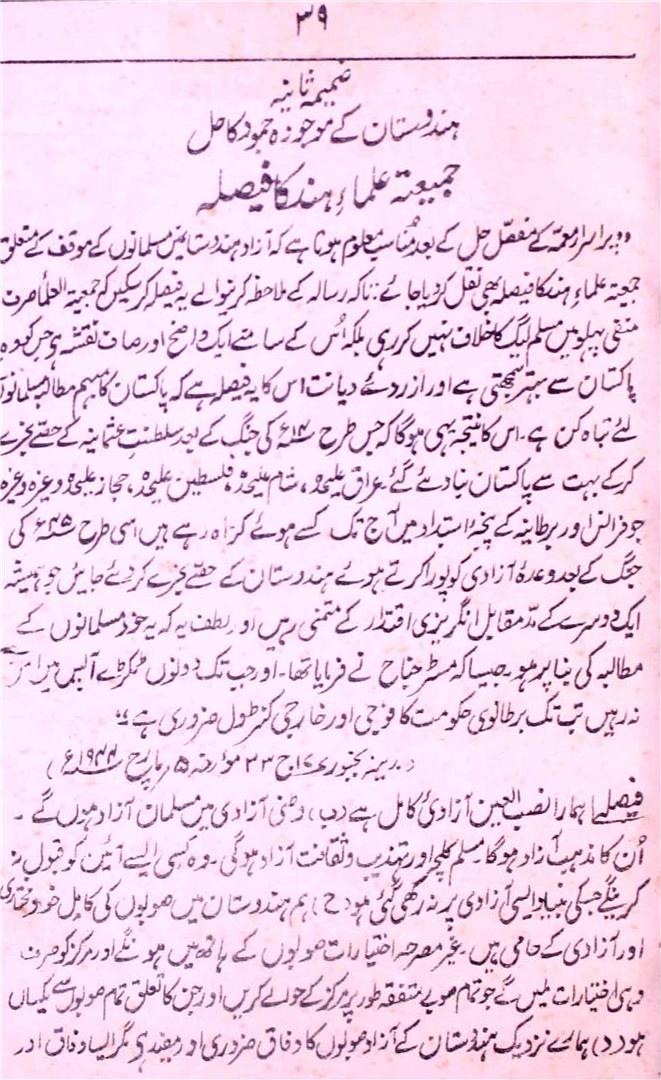 ۳۹
ضمیمہ ثانیہ
ہندوستان کے موجودہ جمود کا حل
جمیعتہ علماء ہند کا فیصلہ
کے مفصل حل کے بعد مناسب معلوم ہوتا ہے کہ آزاد ہندوستان میں مسلمانوں کے موقف کے متعلق
جمعیتہ علماء ہند کا فیصلہ بھی نقل کر دیا جائے: تاکہ رسالہ کے ملاحظہ کرنیوالے یہ فیصلہ کر سکیں کہ جمعیۃ العلماء صرف
منفی پہلو میں مسلم لیگ کا خلاف نہیں کر رہی بلکہ اُس کے سامنے ایک واضح اور صاف نقشہ ہے جس کو وہ
پاکستان سے بہتر سمجھتی ہے اور از روئے دیانت اس کا یہ فیصلہ ہے کہ پاکستان کا مبہم مطالبہ مسلمانوں
لئے تباہ کن ہے۔ اس کا نتیجہ یہی ہوگا کہ جس طرح ۱۴ء کی جنگ کے بعد سلطنتِ عثمانیہ کے حصّے بخرے
کر کے بہت سے پاکستان بنا دئے گئے۔ عراق علیحدہ، شام علیحدہ، فلسطین علیحدہ، حجاز علیحدہ وغیرہ وغیرہ
جو فرانس اور برطانیہ کے پنجۂ استبداد میں آج تک کسے ہوئے کراہ رہے ہیں اسی طرح ۴۵ء کی
جنگ کے بعد وعدۂ آزادی کو پورا کرتے ہوئے ہندوستان کے حصّے بخرے کر دئے جائیں جو ہمیشہ
ایک دوسرے کے مدّ مقابل انگریزی اقتدار کے متمنی رہیں اور لطف یہ کہ یہ خود مسلمانوں کے
مطالبہ کی بنا پر ہو۔ جیسا کہ مسٹر جناح نے فرمایا تھا۔ اور جب تک دونوں ٹکڑے آپس میں
نہ رہیں تب تک برطانوی حکومت کا فوجی اور خارجی کنٹرول ضروری ہے"؛
(مدینہ بجنور ۱۷ ج ۳۳ مورخہ ۵؍ مارچ ۱۹۴۴ء)
فیصلہ ہمارا نصب العین آزادیٔ کامل ہے (ب) وطنی آزادی میں مسلمان آزاد ہوں گے۔
اُن کا مذہب آزاد ہوگا۔ مسلم کلچر اور تہذیب و ثقافت آزاد ہوگی۔ وہ کسی ایسے آئین کو قبول نہ
کرینگے جسکی بنیاد ایسی آزادی پر نہ رکھی گئی ہو (ج) ہم ہندوستان میں صوبوں کی کامل خود مختاری
اور آزادی کے حامی ہیں۔ غیر مصرحہ اختیارات صوبوں کے ہاتھ میں ہونگے اور مرکز کو صرف
وہی اختیارات ملیں گے جو تمام صوبے متفقہ طور پر مرکز کے حوالے کریں اور جن کا تعلق تمام صوبوں سے یکساں
ہو (د) ہمارے نزدیک ہندوستان کے آزاد صوبوں کا وفاق ضروری اور مفید ہے مگر ایسا وفاق اور